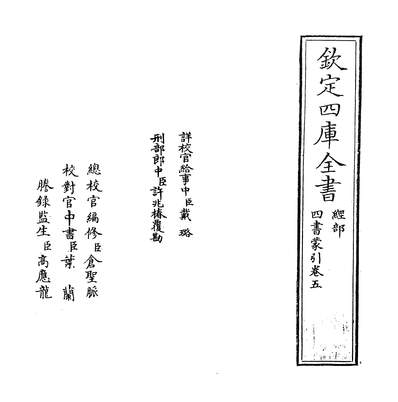 欽定四庫全書
經部
四書蒙引卷五
詳校官給事中臣戴璐
刑部郎中臣許兆椿覆勘
總校官編修臣倉聖脈
校對官中書臣葉蘭
謄錄監生臣高應龍